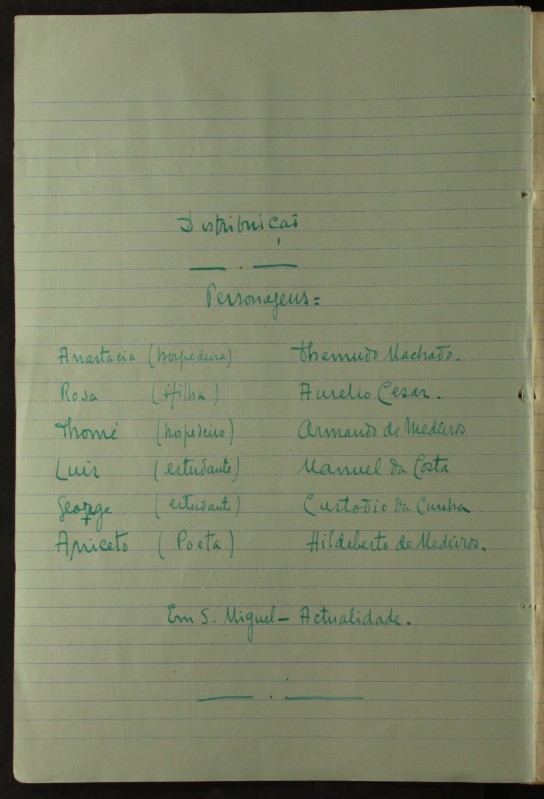 Distribuição
Personagens =
Anastacia (hospedeira) Themudo Machado.
Rosa (filha) Aurelio Cesar.
Thomé (hospedeiro) Armando de Medeiros
Luis (estudante) Manuel da Costa
George (estudante) Custodio da Cunha
Aniceto (Poeta) Hildeberto de Medeiros.
Em S. Miguel - Actualidade.